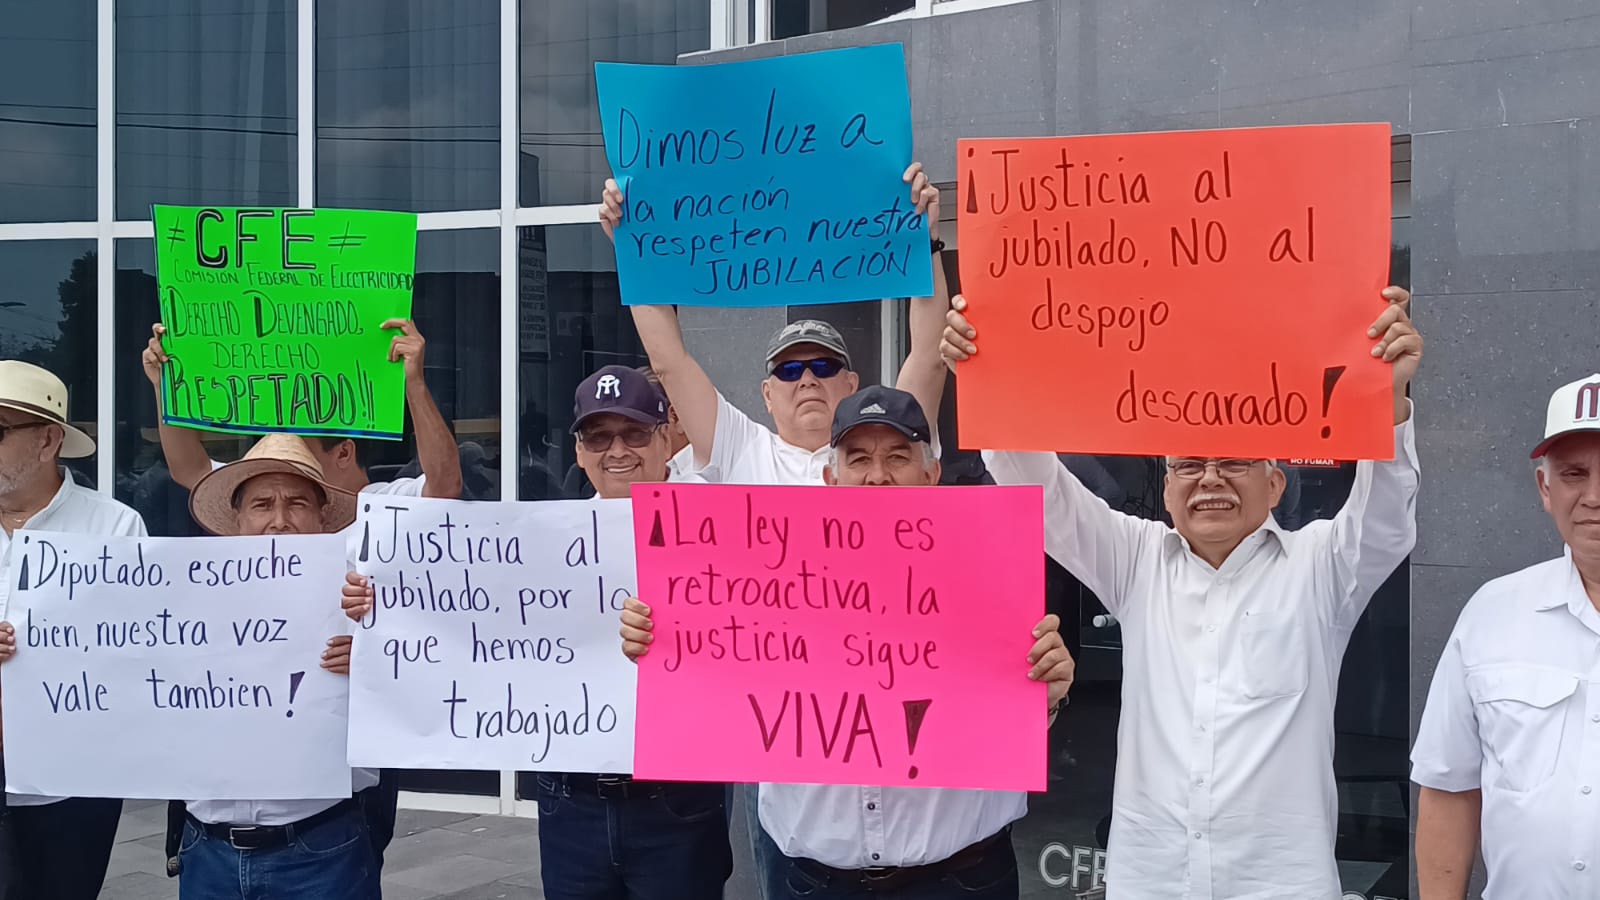 ≠ CFE ≠
COMISIÓN FEDERAL DE ELECTRICIDAD
¡DERECHO DEVENGADO,
DERECHO
RESPETADO!!
Dimos luz a
la nación
respeten nuestra
JUBILACIÓN
¡Justicia al
jubilado, NO al
despojo
descarado!
¡Diputado, escuche
bien, nuestra voz
vale tambien!
¡Justicia al
jubilado, por lo
que hemos
trabajado
¡La ley no es
retroactiva, la
justicia sigue
VIVA!
NO FUMAR
CFE